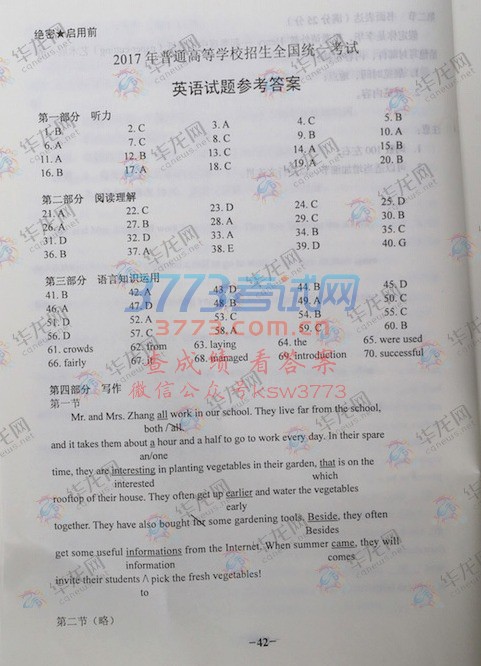 绝密★启用前
2017年普通高等学校招生全国统一考试
英语试题参考答案
第一部分 听力
1. B 2. C 3. A 4. C 5. B
6. A 7. C 8. C 9. B 10. A
11. A 12. B 13. C 14. A 15. B
16. B 17. A 18. C 19. A 20. B
第二部分 阅读理解
21. A 22. C 23. D 24. C 25. D
26. A 27. B 28. A 29. C 30. B
31. D 32. D 33. A 34. B 35. C
36. B 37. A 38. E 39. D 40. G
第三部分 语言知识运用
41. B 42. A 43. D 44. B 45. D
46. A 47. D 48. B 49. A 50. C
51. D 52. A 53. C 54. B 55. C
56. D 57. C 58. A 59. C 60. B
61. crowds 62. from 63. laying 64. the 65. were used
66. fairly 67. it 68. managed 69. introduction 70. successful
3773考试网
3773.com.cn
查成绩 看答案
微信公众号ksw3773
第四部分 写作
第一节
Mr. and Mrs. Zhang all work in our school. They live far from the school,
both / all
and it takes them about a hour and a half to go to work every day. In their spare
an/one
time, they are interesting in planting vegetables in their garden, that is on the
interested which
rooftop of their house. They often get up earlier and water the vegetables
early
together. They have also bought for some gardening tools. Beside, they often
Besides
get some useful informations from the Internet. When summer came, they will
information comes
invite their students ∧ pick the fresh vegetables!
to
第二节（略）
-42-
华龙网
caneus.net